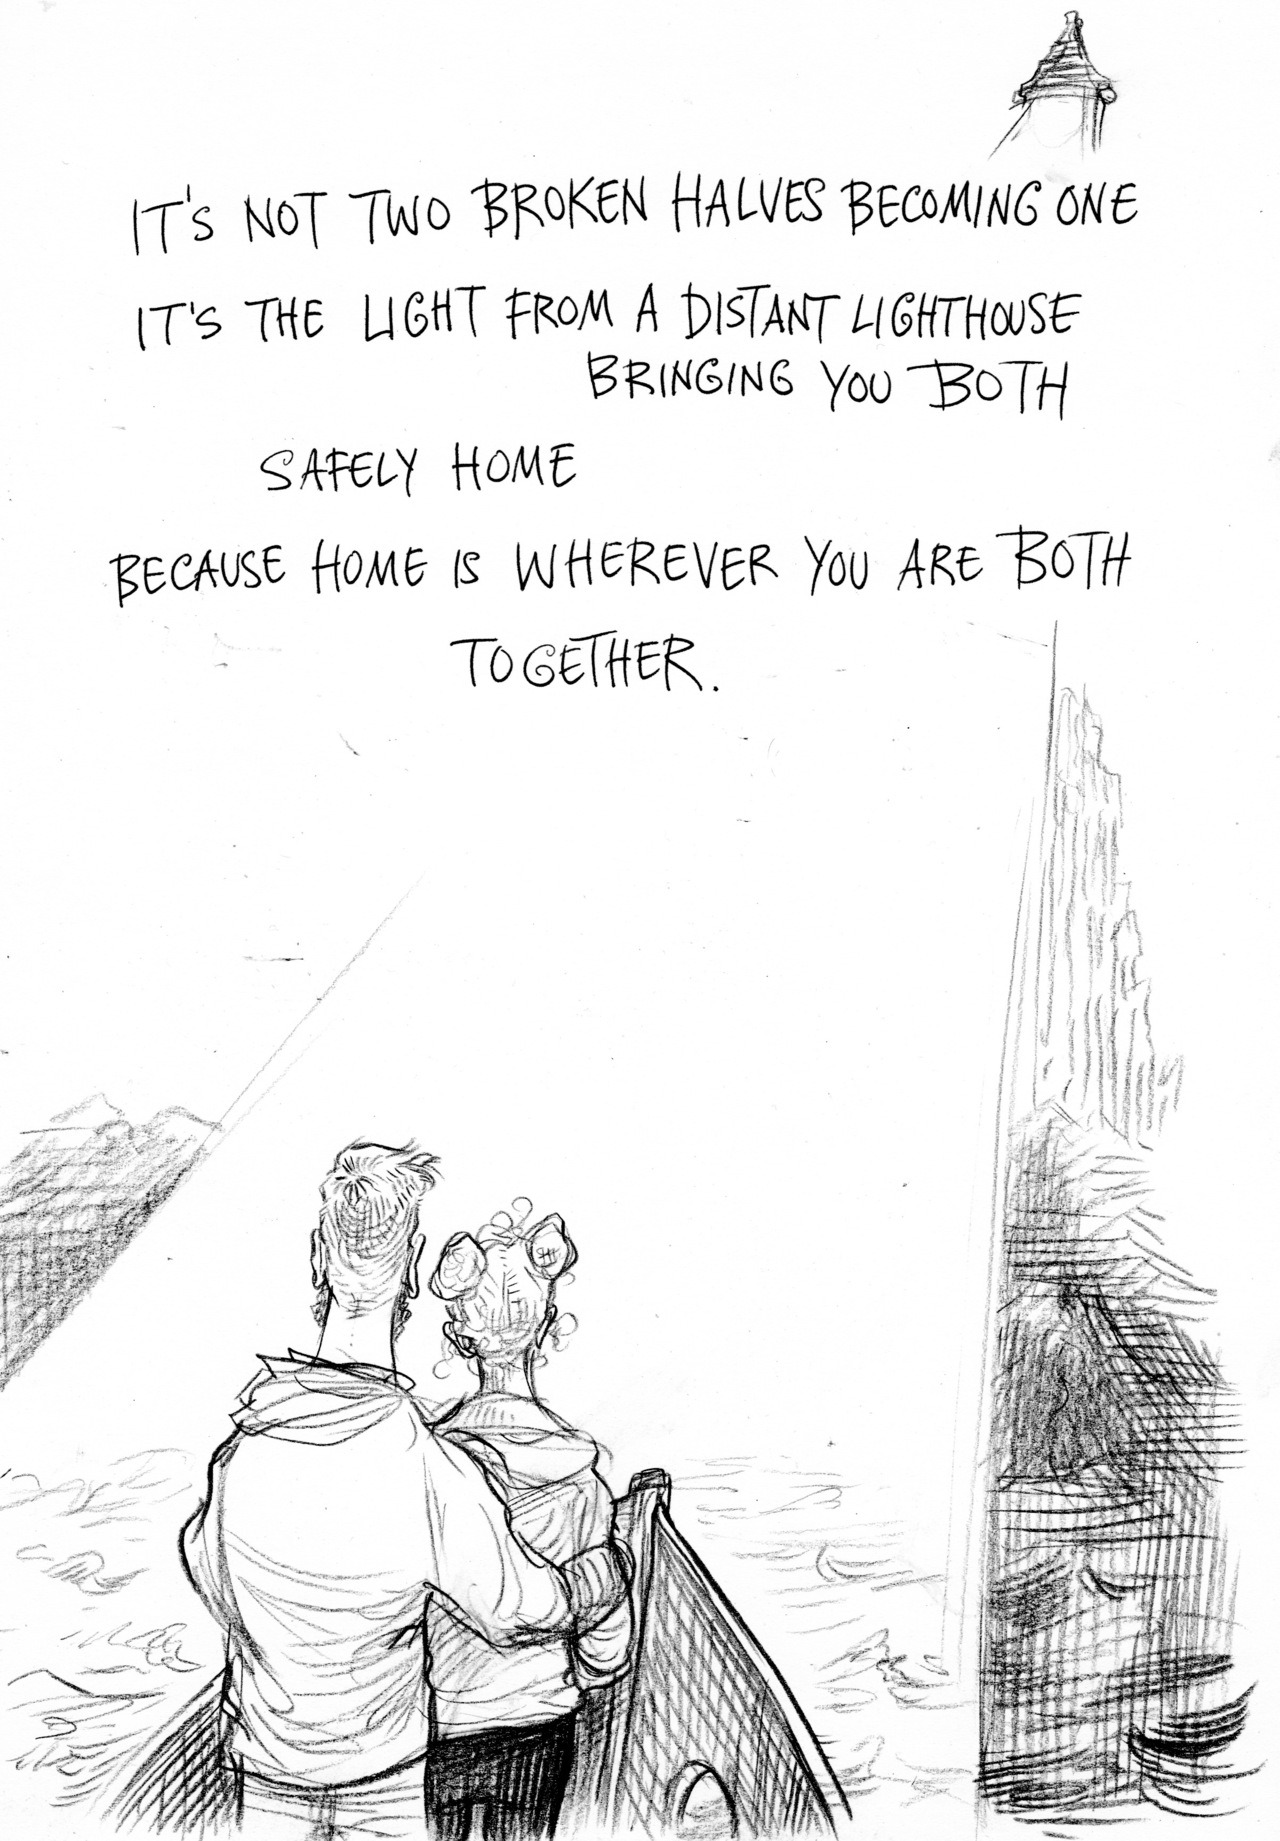 IT'S NOT TWO BROKEN HALVES BECOMING ONE
IT'S THE LIGHT FROM A DISTANT LIGHTHOUSE
BRINGING YOU BOTH
SAFELY HOME
BECAUSE HOME IS WHEREVER YOU ARE BOTH
TOGETHER.